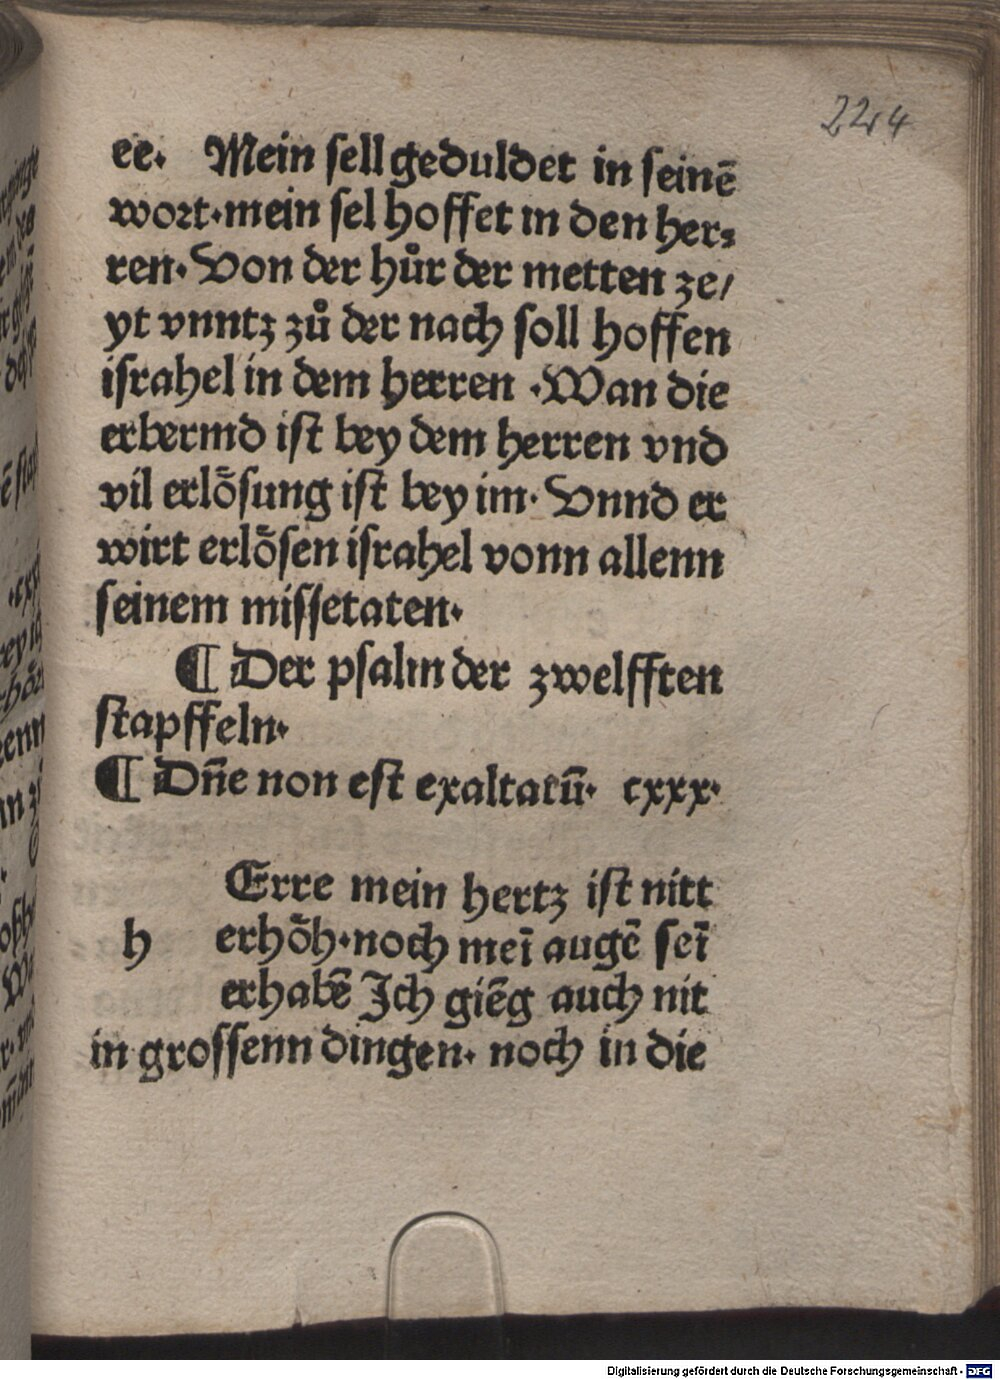 224
ee. Mein sell geduldet in seinē
wort·mein sel hoffet in den her⸗
ren. Von der hůr der metten ze/
yt vnntz zů der nach soll hoffen
israhel in dem herren .Wan die
erbermd ist bey dem herren vnd
vil erlõsung ist bey im. Vnnd er
wirt erlõsen israhel vonn allenn
seinem missetaten.
¶ Der psalm der zwelfften
stapffeln.
¶ Dn̄e non est exaltatū. cxxx.
Erre mein hertz ist nitt
h erhõh·noch meī augē seī
erhabē Jch giēg auch nit
in grossenn dingen. noch in die
Digitalisierung gefördert durch die Deutsche Forschungsgemeinschaft - DFG